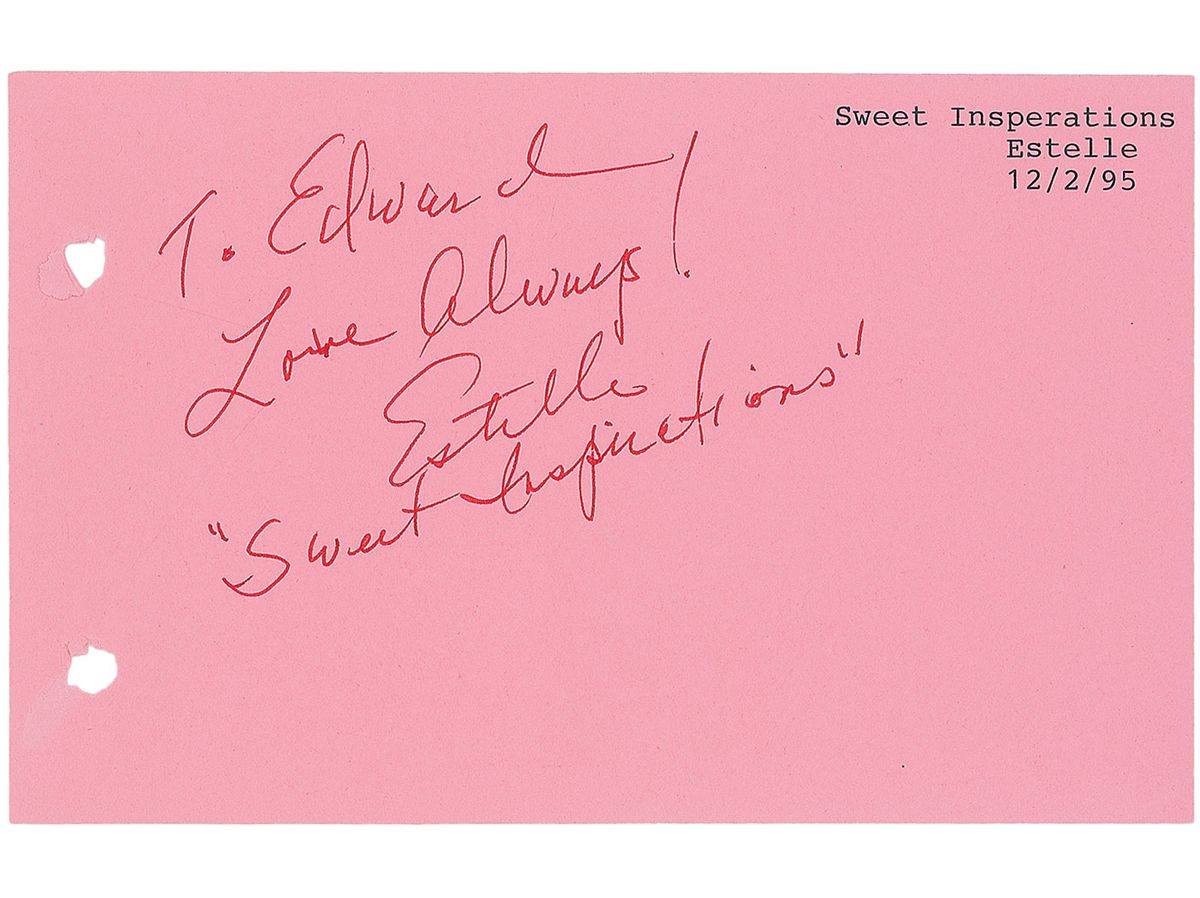 Sweet Insperations
Estelle
12/2/95
T. Edward
Love Always!
Estelle
"Sweet Inspirations"